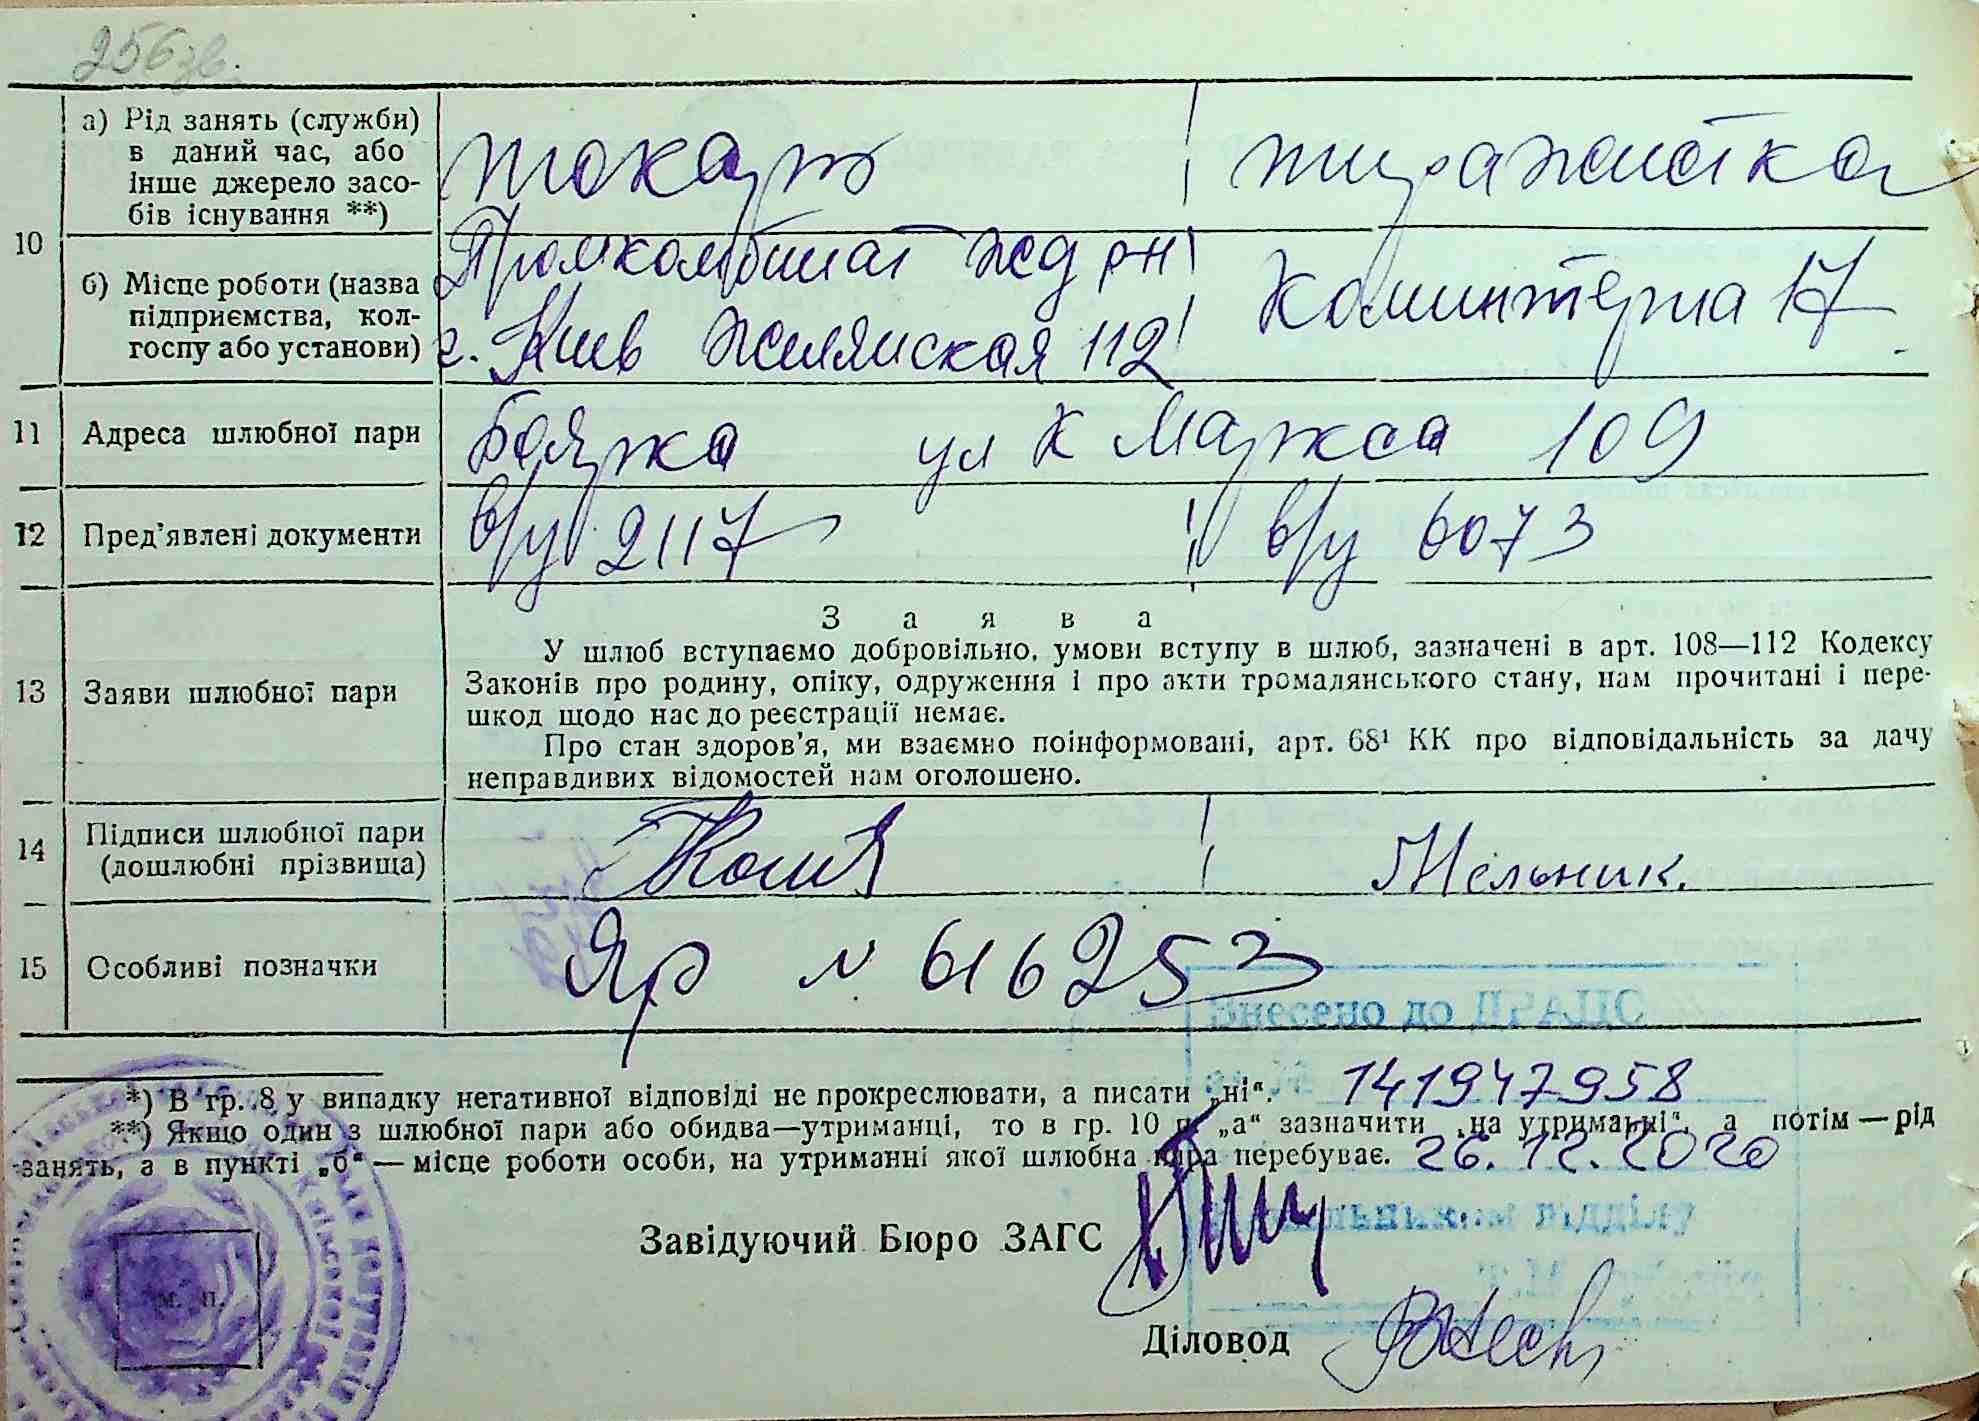 256зв.
а) Рід занять (служби) в даний час, або інше джерело засо-бів існування **)
токарь
тиражистка
10
б) Місце роботи (назва підприємства, кол-госпу або установи)
Промкомбинат жд р-н
г. Киев Жилянская 112
Коминтерна 17
11 Адреса шлюбної пари
Боярка ул К Маркса 109
12 Пред'явлені документи
в/у 2117
в/у 6073
Заява
У шлюб вступаємо добровільно, умови вступу в шлюб, зазначені в арт. 108—112 Кодексу
13 Заяви шлюбної пари
Законів про родину, опіку, одруження і про акти громадянського стану, нам прочитані і пере-
шкод щодо нас до реєстрації немає.
Про стан здоров'я, ми взаємно поінформовані, арт. 68¹ КК про відповідальність за дачу
неправдивих відомостей нам оголошено.
14 Підписи шлюбної пари (дошлюбні прізвища)
Мельник.
15 Особливі позначки
Яр № 616253
Внесено до ДРАЦС
*) В гр. 8 у випадку негативної відповіді не прокреслювати, а писати „ні“.
141947958
**) Якщо один з шлюбної пари або обидва—утриманці, то в гр. 10 п. „а“ зазначити „на утриманні“, а потім — рід
занять, а в пункті „б“ — місце роботи особи, на утриманні якої шлюбна пара перебуває.
26.12.2020
Завідуючий Бюро ЗАГС
Начальником відділу
м. п.
Діловод